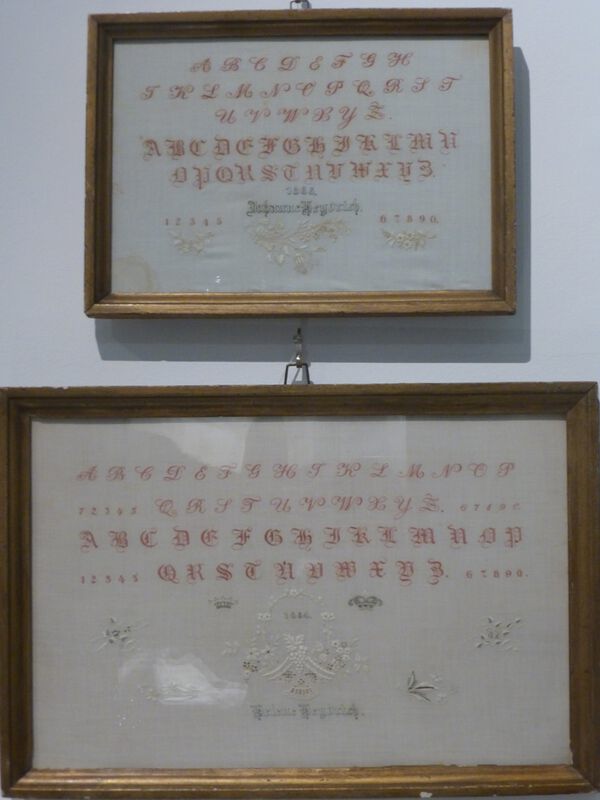 A B C D E F G H
I K L M N O P Q R S T
U V W X Y Z.
A B C D E F G H I K L M N
O P Q R S T U V W X Y Z.
Johanne Heydrich.
1 2 3 4 5 6 7 8 9 0.
A B C D E F G H I K L M N O P
1 2 3 4 5 Q R S T U V W X Y Z. 6 7 8 9 0.
A B C D E F G H I K L M N O P
1 2 3 4 5 Q R S T U V W X Y Z. 6 7 8 9 0.
Helene Heydrich.